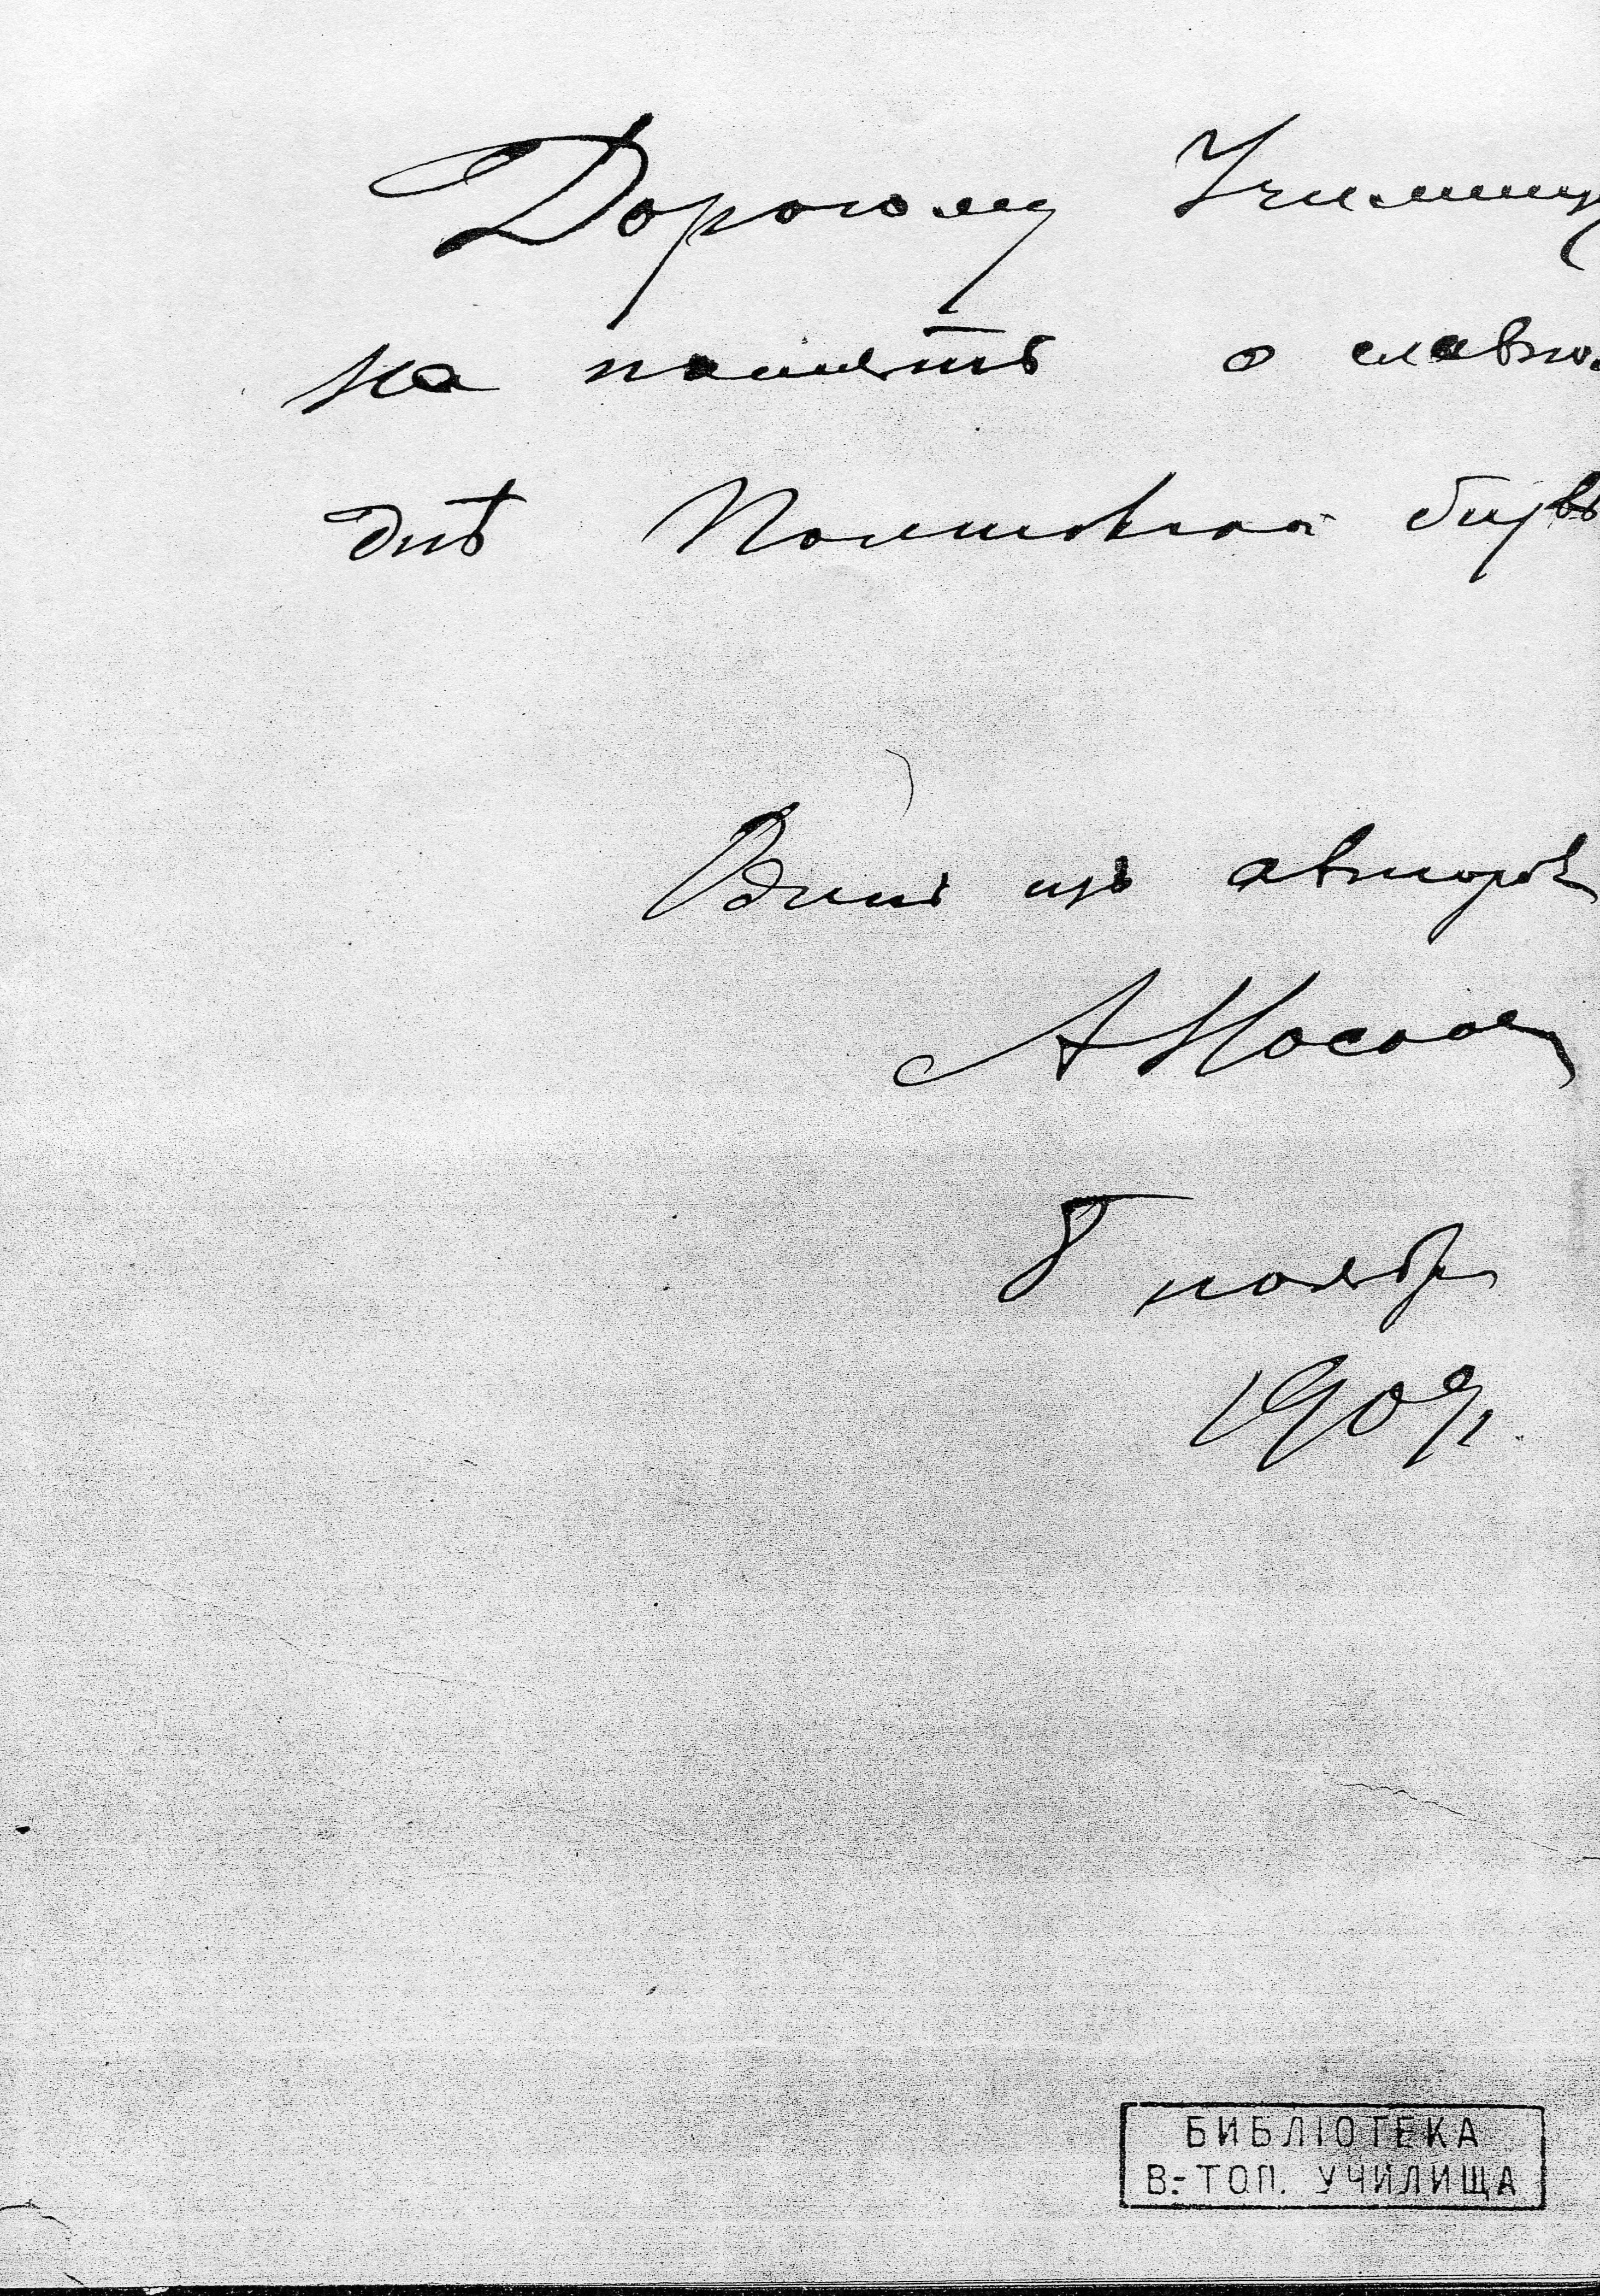 Дорогому Училищу
на память о славно
днѣ Полтавской битв
Одинъ изъ авторовъ
А Носков
8 ноябр
1909 г.
БИБЛІОТЕКА
В.-ТОП. УЧИЛИЩА